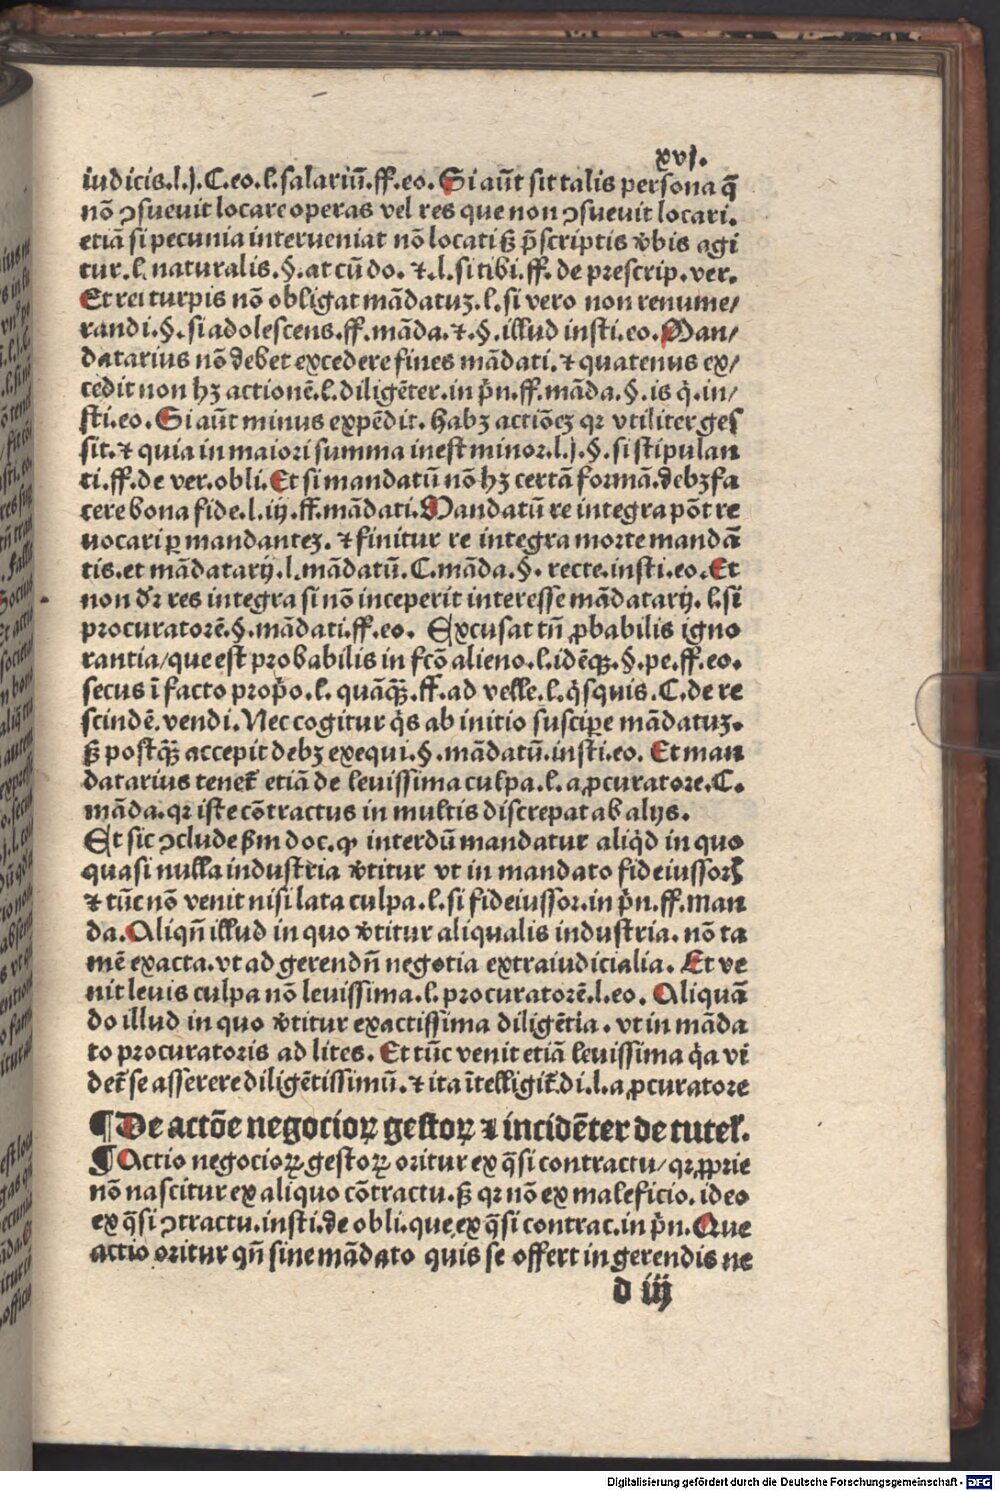 xvj.
iudicis.l.j.C.eo.l.salariū.ff.eo.Si aūt sit talis persona q̄
nō ↄsueuit locare operas vel res que non ↄsueuit locari.
etiā si pecunia interueniat nō locati ꝫ p̄scriptis v̄bis agi
tur.l.naturalis.§.at cū do.⁊.l.si tibi.ff.de prescrip.ver.
Et rei turpis nō obligat mādatuꝫ.l.si vero non renume/
randi.§.si adolescens.ff.māda.⁊.§.illud insti.eo.Man/
datarius nō debet excedere fines mādati.⁊ quatenus ex/
cedit non hꝫ actionē.l.diligēter.in p̄n.ff.māda.§.is q̇.in/
sti.eo.Si aūt minus expēdit.habꝫ actiōeꝫ qꝛ vtiliter ges
sit.⁊ quia in maiori summa inest minor.l.j.§.si stipulan
ti.ff.de ver.obli.Et si mandatū nō hꝫ certā formā.debꝫ fa
cere bona fide.l.iij.ff.mādati.Mandatū re integra pōt re
uocari ꝑ mandanteꝫ.⁊ finitur re integra morte mandā
tis.et mādatarij.l.mādatū.C.māda.§.recte.insti.eo.Et
non dr̄ res integra si nō inceperit interesse mādatarij.l.si
procuratorē.§.mādati.ff.eo. Excusat tn̄ ꝓbabilis igno
rantia/que est probabilis in fcō alieno.l.idēqꝫ.§.pe.ff.eo.
secus ī facto prop̄o.l.quāqꝫ̄.ff.ad velle.l.q̇squis.C.de re
scindē.vendi.Nec cogitur q̇s ab initio suscipe mādatuꝫ.
ꝫ postqꝫ̄ accepit debꝫ exequi.§.mādatū.insti.eo. Et man
datarius tenet̄ etiā de leuissima culpa.l.a ꝓcuratore.C.
māda.qꝛ iste cōtractus in multis discrepat ab alijs.
Et sic ↄclude ẜm doc.ꝙ interdū mandatur aliq̇d in quo
quasi nulla industria v̄titur vt in mandato fideiussorꝭ
⁊ tūc nō venit nisi lata culpa.l.si fideiussor.in p̄n.ff.man
da.Aliqn̄ illud in quo v̄titur aliqualis industria.nō ta
mē exacta.vt ad gerendn̄ negotia extraiudicialia. Et ve
nit leuis culpa nō leuissima.l.procuratorē.l.eo. Aliquā
do illud in quo v̄titur exactissima diligētia.vt in māda
to procuratoris ad lites. Et tūc venit etiā leuissima q̇a vi
det̄ se asserere diligētissimū.⁊ ita ītelligit̄.di.l.a ꝓcuratore
¶De actōe negocioꝝ gestoꝝ ⁊ incidēter de tutel̄.
¶Actio negocioꝝ gestoꝝ oritur ex q̄si contractu/qꝛ ꝓprie
nō nascitur ex aliquo cōtractu.ꝫ qꝛ nō ex maleficio.ideo
ex q̄si ↄtractu.insti.de obli.que.ex q̄si contrac.in p̄n.Que
actio oritur qn̄ sine mādato quis se offert in gerendis ne
d iij
Digitalisierung gefördert durch die Deutsche Forschungsgemeinschaft - DFG